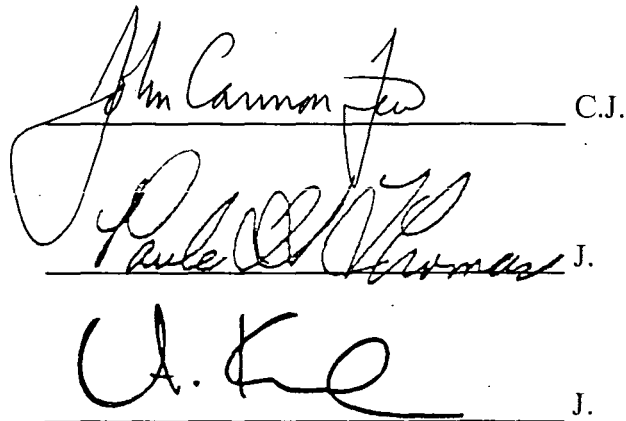 John Cannon Few C.J.
Paula H. Thomas J.
A. K J.